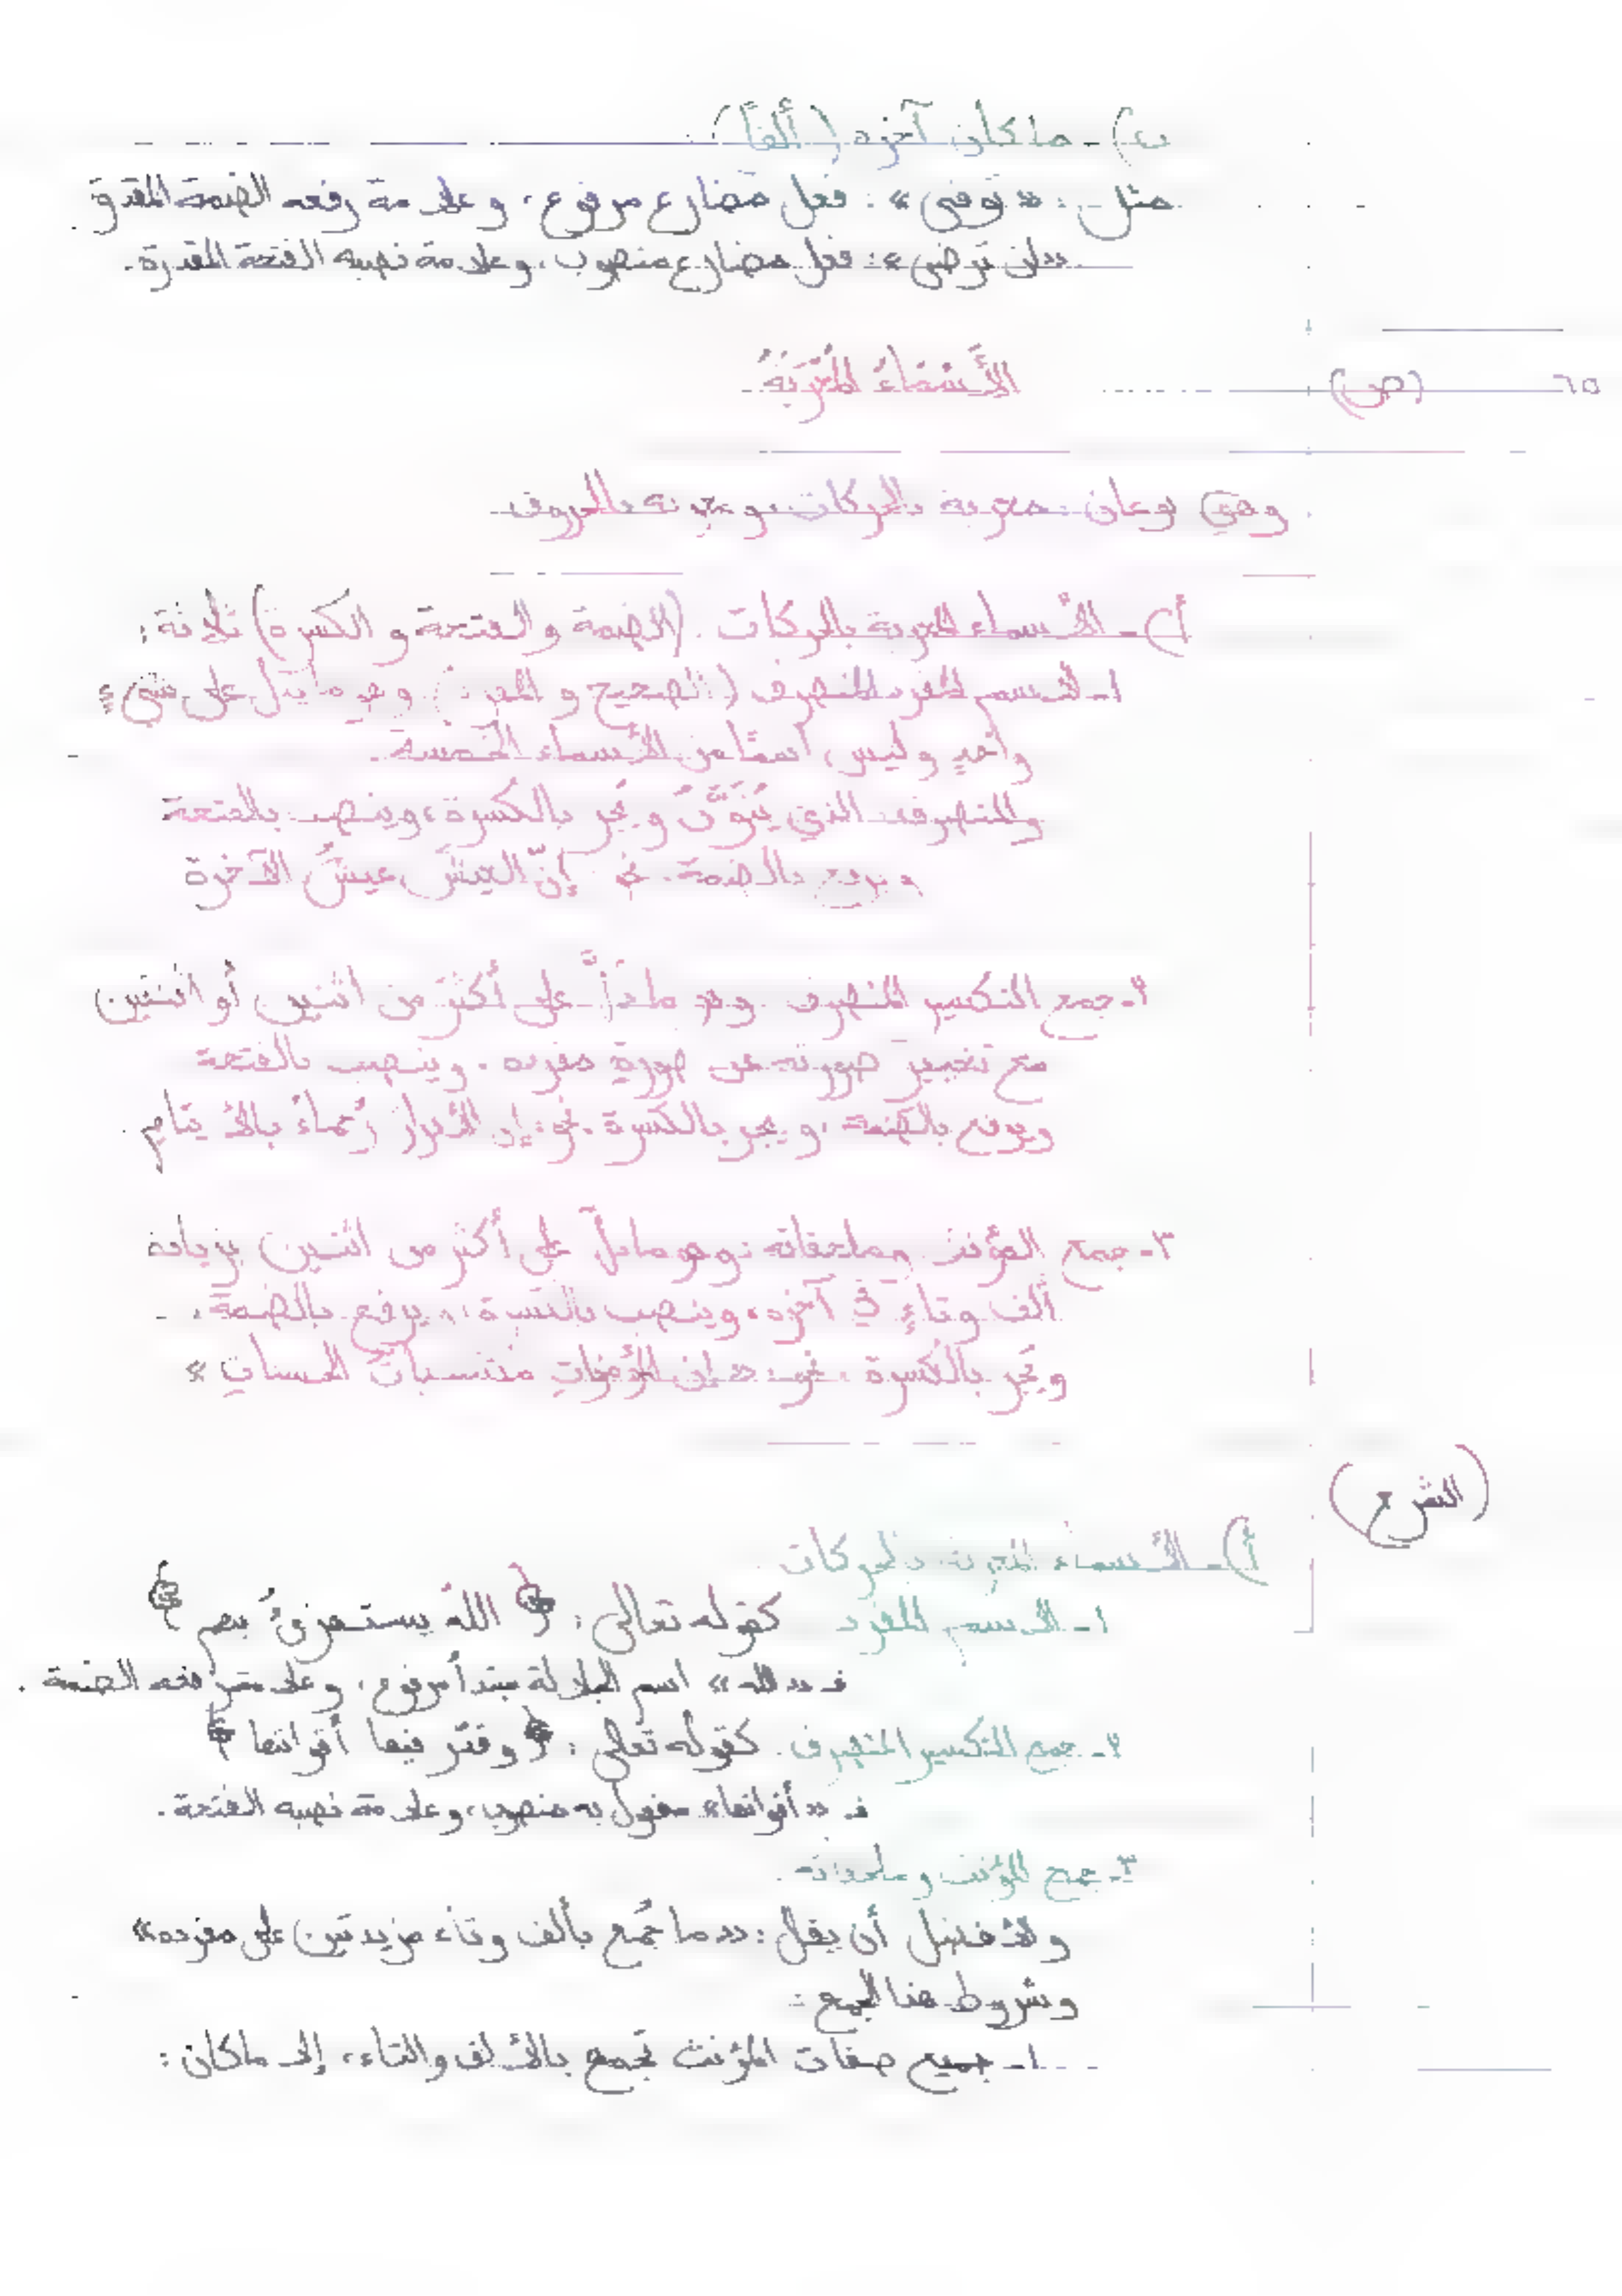 ب) - ما كان آخره (ألفاً).
مثل: «توفى»: فعل مضارع مرفوع، وعلامة رفعه الضمة المقدرة
«لن ترضى»: فعل مضارع منصوب، وعلامة نصبه الفتحة المقدرة.
٦٥ (ص) الأَسْمَاءُ المُعْرَبَةُ
وهي نوعان: معربة بالحركات، ومعربة بالحروف
أ) - الأسماء المعربة بالحركات (الضمة والفتحة والكسرة) ثلاثة:
١- الاسم المفرد المنصرف (الصحيح و ) وهو ما يدل على شيء
واحدٍ وليس اسمًا من الأسماء الخمسة.
والمنصرف الذي يُنَوَّنُ ويُجر بالكسرة، وينصب بالفتحة
ويرفع بالضمة. نحو إنّ العيشَ عيشُ الآخرة
٢- جمع التكسير المنصرف وهو ما دلَّ على أكثر من اثنين أو اثنتين
مع تغيير صورته عن صورة مفرده. وينصب بالفتحة
ويرفع بالضمة، ويجر بالكسرة. نحو: إن الأبرار رُحماءُ بالأيتام
٣- جمع المؤنث وملحقاته: وهو ما دلّ على أكثر من اثنتين بزيادة
ألف وتاءٍ في آخره، وينصب بالكسرة، ويرفع بالضمة،
ويُجر بالكسرة، نحو: «إن المؤمناتِ منتسباتُ الحسناتِ»
(الشرح)
أ) - الأسماء المعربة بالحركات
١- الاسم المفرد كقوله تعالى: ﴿ اللهُ يستهزئُ بهم ﴾
فـ «الله» اسم الجلالة مبتدأ مرفوع، وعلامة رفعه الضمة.
٢- جمع التكسير المنصرف. كقوله تعالى: ﴿ وقدّر فيها أقواتها ﴾
فـ «أقواتها» مفعول به منصوب، وعلامة نصبه الفتحة.
٣- جمع المؤنث وملحقاته.
والأفضل أن يقال: «ما جُمع بألف وتاء مزيدتين على مفرده»
وشروط هذا الجمع:
١- جميع صفات المؤنث تُجمع بالألف والتاء، إلا ما كان: